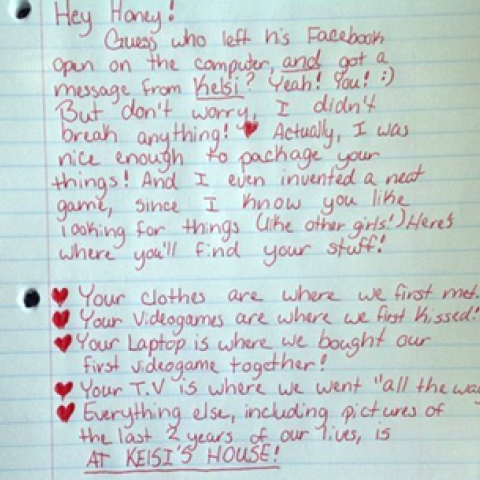 Hey Honey!
Guess who left his Facebook
open on the computer, and got a
message from Kelsi? Yeah! You! :)
But don't worry, I didn't
break anything! ♥ Actually, I was
nice enough to package your
things! And I even invented a neat
game, since I know you like
looking for things (like other girls!) Here's
where you'll find your stuff!
♥ Your clothes are where we first met.
♥ Your Videogames are where we first kissed!
♥ Your Laptop is where we bought our
first videogame together!
♥ Your T.V is where we went "all the way
♥ Everything else, including pictures of
the last 2 years of our lives, is
AT KElSI'S HOUSE!